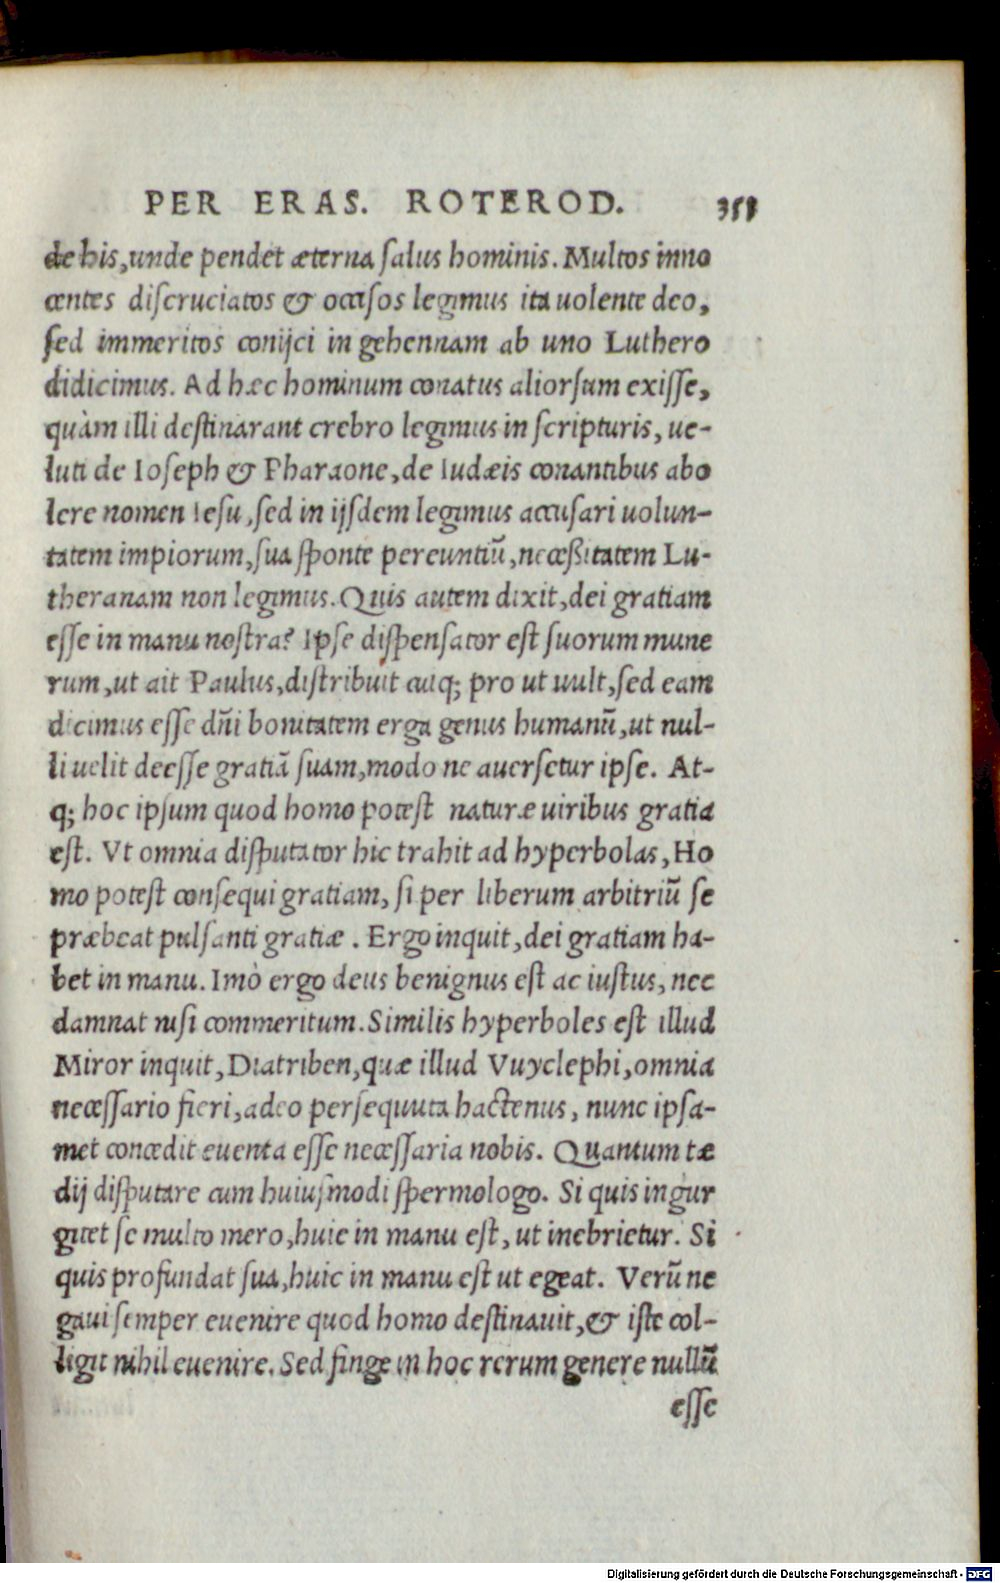 PER ERAS. ROTEROD. 351
de his, unde pendet æterna salus hominis. Multos inno
centes discruciatos & occisos legimus ita uolente deo,
sed immeritos conijci in gehennam ab uno Luthero
didicimus. Ad hæc hominum conatus aliorsum exisse,
quàm illi destinarant crebro legimus in scripturis, ue-
luti de Ioseph & Pharaone, de Iudæis conantibus abo
lere nomen Iesu, sed in ijsdem legimus accusari uolun-
tatem impiorum, sua sponte pereuntiū, necessitatem Lu-
theranam non legimus. Quis autem dixit, dei gratiam
esse in manu nostra? Ipse dispensator est suorum mune
rum, ut ait Paulus, distribuit cuiq; pro ut uult, sed eam
dicimus esse dñi bonitatem erga genus humanū, ut nul-
li uelit deesse gratiā suam, modo ne auersetur ipse. At-
q; hoc ipsum quod homo potest naturæ uiribus gratia
est. Vt omnia disputator hic trahit ad hyperbolas, Ho
mo potest consequi gratiam, si per liberum arbitriū se
præbeat pulsanti gratiæ. Ergo inquit, dei gratiam ha-
bet in manu. Imò ergo deus benignus est ac iustus, nec
damnat nisi commeritum. Similis hyperboles est illud
Miror inquit, Diatriben, quæ illud Vuyclephi, omnia
necessario fieri, adeo persequuta hactenus, nunc ipsa-
met concedit euenta esse necessaria nobis. Quantum tæ
dij disputare cum huiusmodi spermologo. Si quis ingur
gitet se multo mero, huic in manu est, ut inebrietur. Si
quis profundat sua, huic in manu est ut egeat. Verū ne
gaui semper euenire quod homo destinauit, & iste col-
ligit nihil euenire. Sed finge in hoc rerum genere nullū
esse
Digitalisierung gefördert durch die Deutsche Forschungsgemeinschaft - DFG